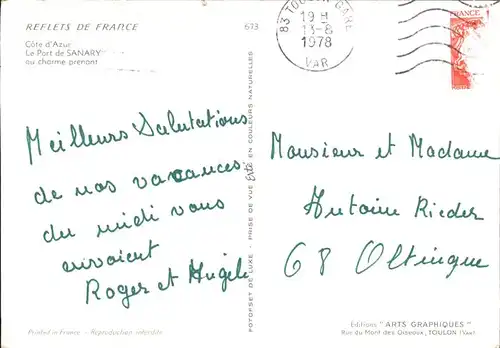 REFLETS DE FRANCE
673
Côte d'Azur
Le Port de SANARY
au charme prenant
83 TOULON GARE
19 H
13-8
1978
VAR
FRANCE
Meilleurs Salutations
de nos vacances
du midi vous
envoient
Roger et Angèle
PHOTOPSET DE LUXE - PRISE DE VUE EN COULEURS NATURELLES
Monsieur et Madame
Antoine Rieder
68 Oltingue
Printed in France - Reproduction interdite
Editions "ARTS GRAPHIQUES"
Rue du Mont des Oiseaux, TOULON (Var)